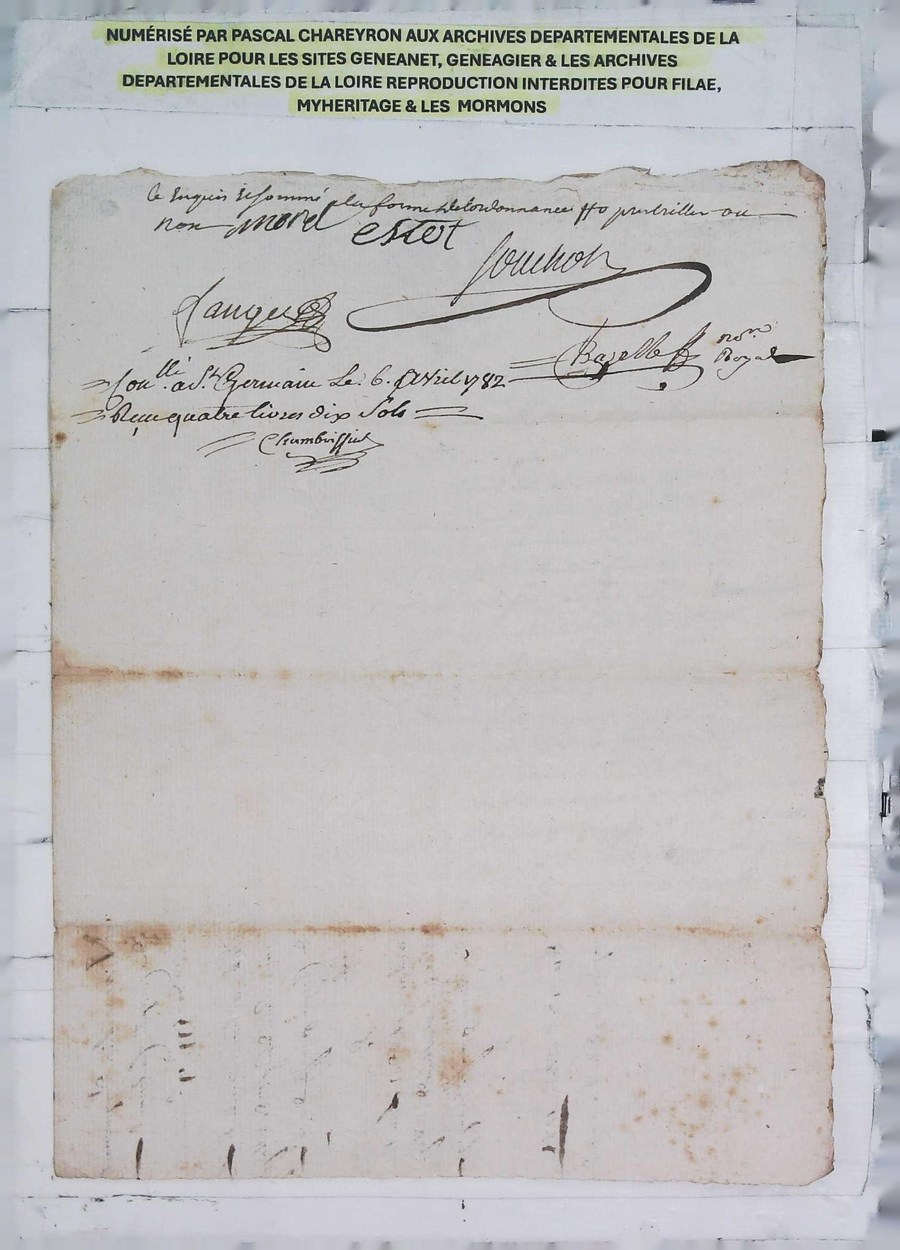 NUMÉRISÉ PAR PASCAL CHAREYRON AUX ARCHIVES DEPARTEMENTALES DE LA
LOIRE POUR LES SITES GENEANET, GENEAGIER & LES ARCHIVES
DEPARTEMENTALES DE LA LOIRE REPRODUCTION INTERDITES POUR FILAE,
MYHERITAGE & LES MORMONS
ce Enquis & sommé a la forme de lordonnance
non morel
Souchon
Roÿal
Con.llé a St. Germain Le. 6. Avril 1782
Reçu quatre livres dix sols